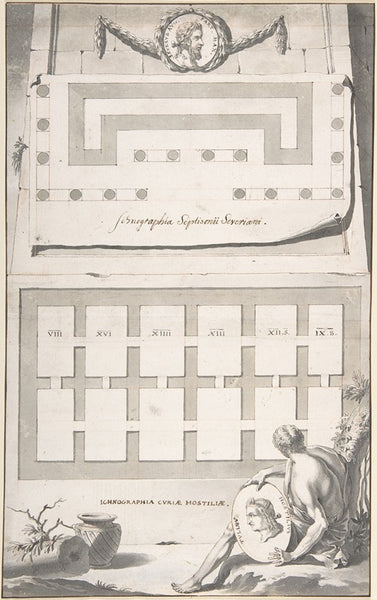 Ichnographia Septizonii Severiani.
VIII XVI XIIII XIII XII.S. IX.S.
ICHNOGRAPHIA CVRIÆ HOSTILIÆ.